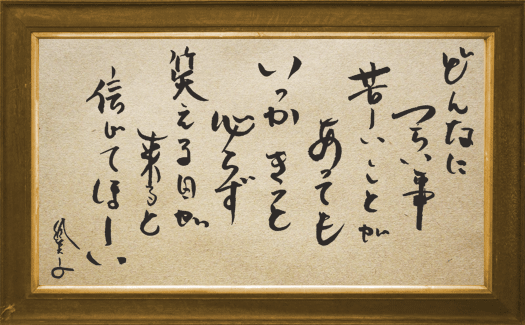 どんなに
つらい事
苦しいことが
あっても
いつか きっと
必らず
笑える日が
来ると
信じてほしい